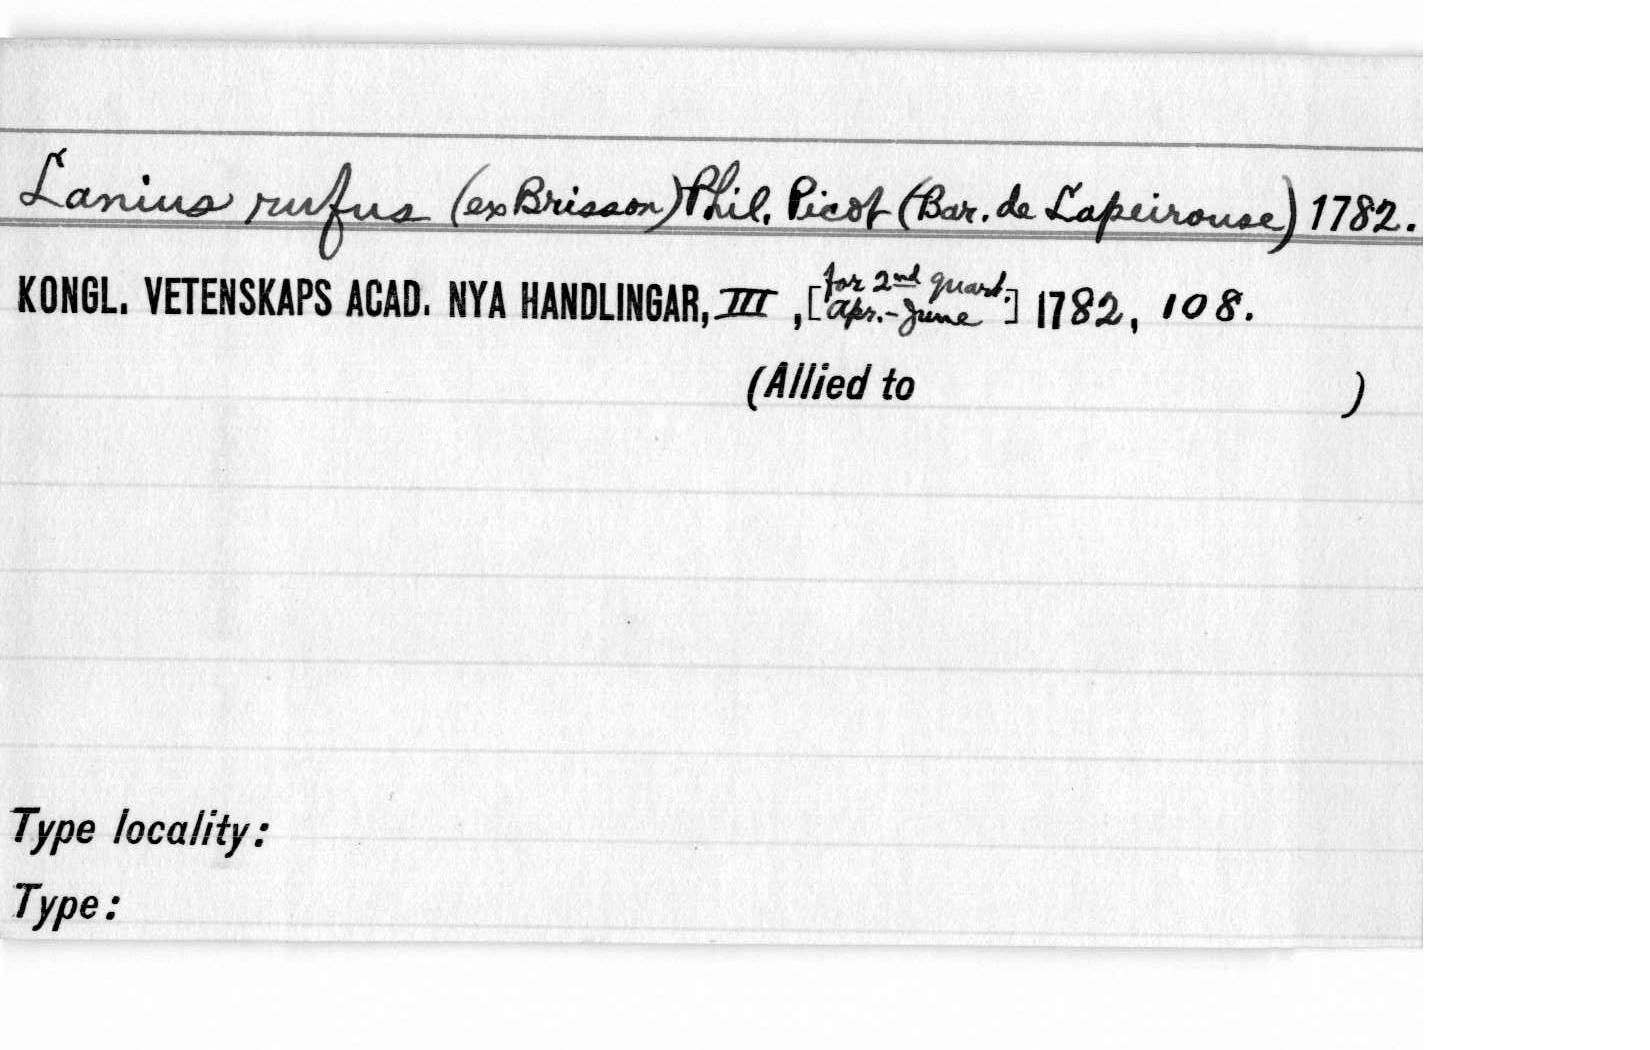 Lanius rufus (ex Brisson) Phil. Picot (Bar. de Lapeirouse) 1782.
KONGL. VETENSKAPS ACAD. NYA HANDLINGAR, III, [for 2nd quart. Apr.-June] 1782, 108.
(Allied to )
Type locality:
Type: